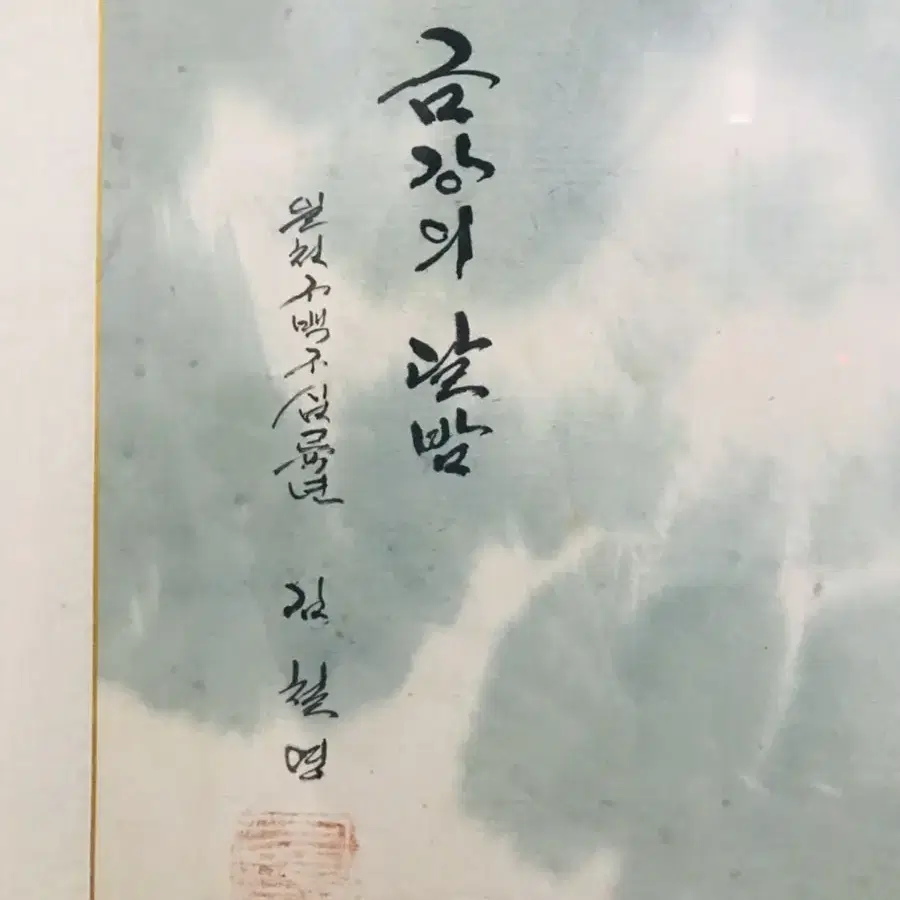 금강의 달밤
일천구백구십륙년 김철명